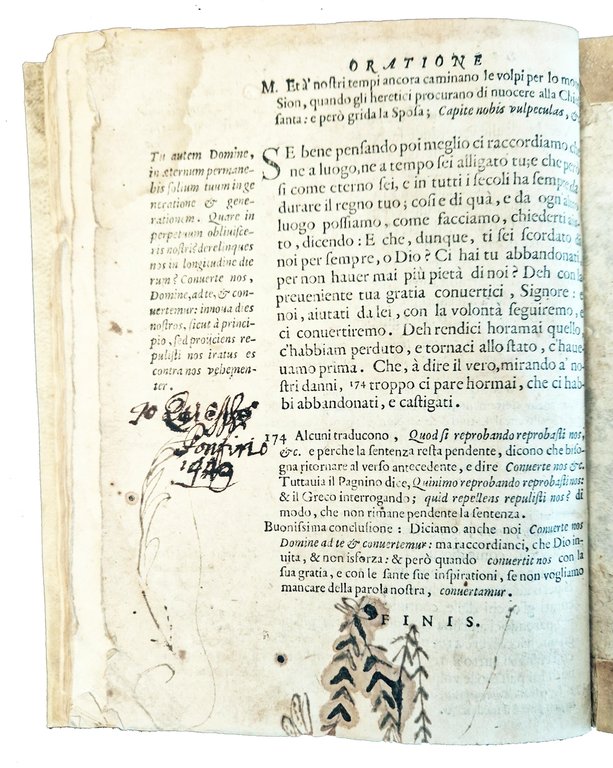 ORATIONE
M. Et à' nostri tempi ancora caminano le volpi per lo
Sion, quando gli heretici procurano di nuocere alla
santa: e però grida la Sposa; Capite nobis vulpeculas, &
Tu autem Domine,
in æternum permane-
bis solium tuum in ge
neratione & gene-
rationem. Quare in
perpetuum obliuisce-
ris nostri? derelinques
nos in longitudine die
rum? Conuerte nos,
Domine, ad te, & con-
uertemur: innoua dies
nostros, sicut à princi-
pio, sed proijciens re-
pulisti nos iratus es
contra nos vehemen-
ter.
SE bene pensando poi meglio ci raccordiamo
ne a luogo, ne a tempo sei alligato tu; e che
si come eterno sei, e in tutti i secoli ha sempre da
durare il regno tuo; cosi e di quà, e da ogn
luogo possiamo, come facciamo, chiederti
to, dicendo: E che, dunque, ti sei scordato di
noi per sempre, o Dio? Ci hai tu abbandonati,
per non hauer mai più pietà di noi? Deh con la
preueniente tua gratia conuertici, Signore: e
noi, aiutati da lei, con la volontà seguiremo, e
ci conuertiremo. Deh rendici horamai quello
c'habbiam perduto, e tornaci allo stato, c'haue-
uamo prima. Che, à dire il vero, mirando a' no-
stri danni, 174 troppo ci pare hormai, che ci hab-
bi abbandonati, e castigati.
174 Alcuni traducono, Quod si reprobando reprobasti nos,
&c. e perche la sentenza resta pendente, dicono che biso-
gna ritornare al verso antecedente, e dire Conuerte nos &c.
Tuttauia il Pagnino dice, Quinimo reprobando reprobasti nos:
& il Greco interrogando; quid repellens repulisti nos? di
modo, che non rimane pendente la sentenza.
Buonissima conclusione: Diciamo anche noi Conuerte nos
Domine ad te & conuertemur: ma raccordianci, che Dio in-
uita, & non isforza: & però quando conuertit nos con la
sua gratia, e con le sante sue inspirationi, se non vogliamo
mancare della parola nostra, conuertamur.
FINIS.